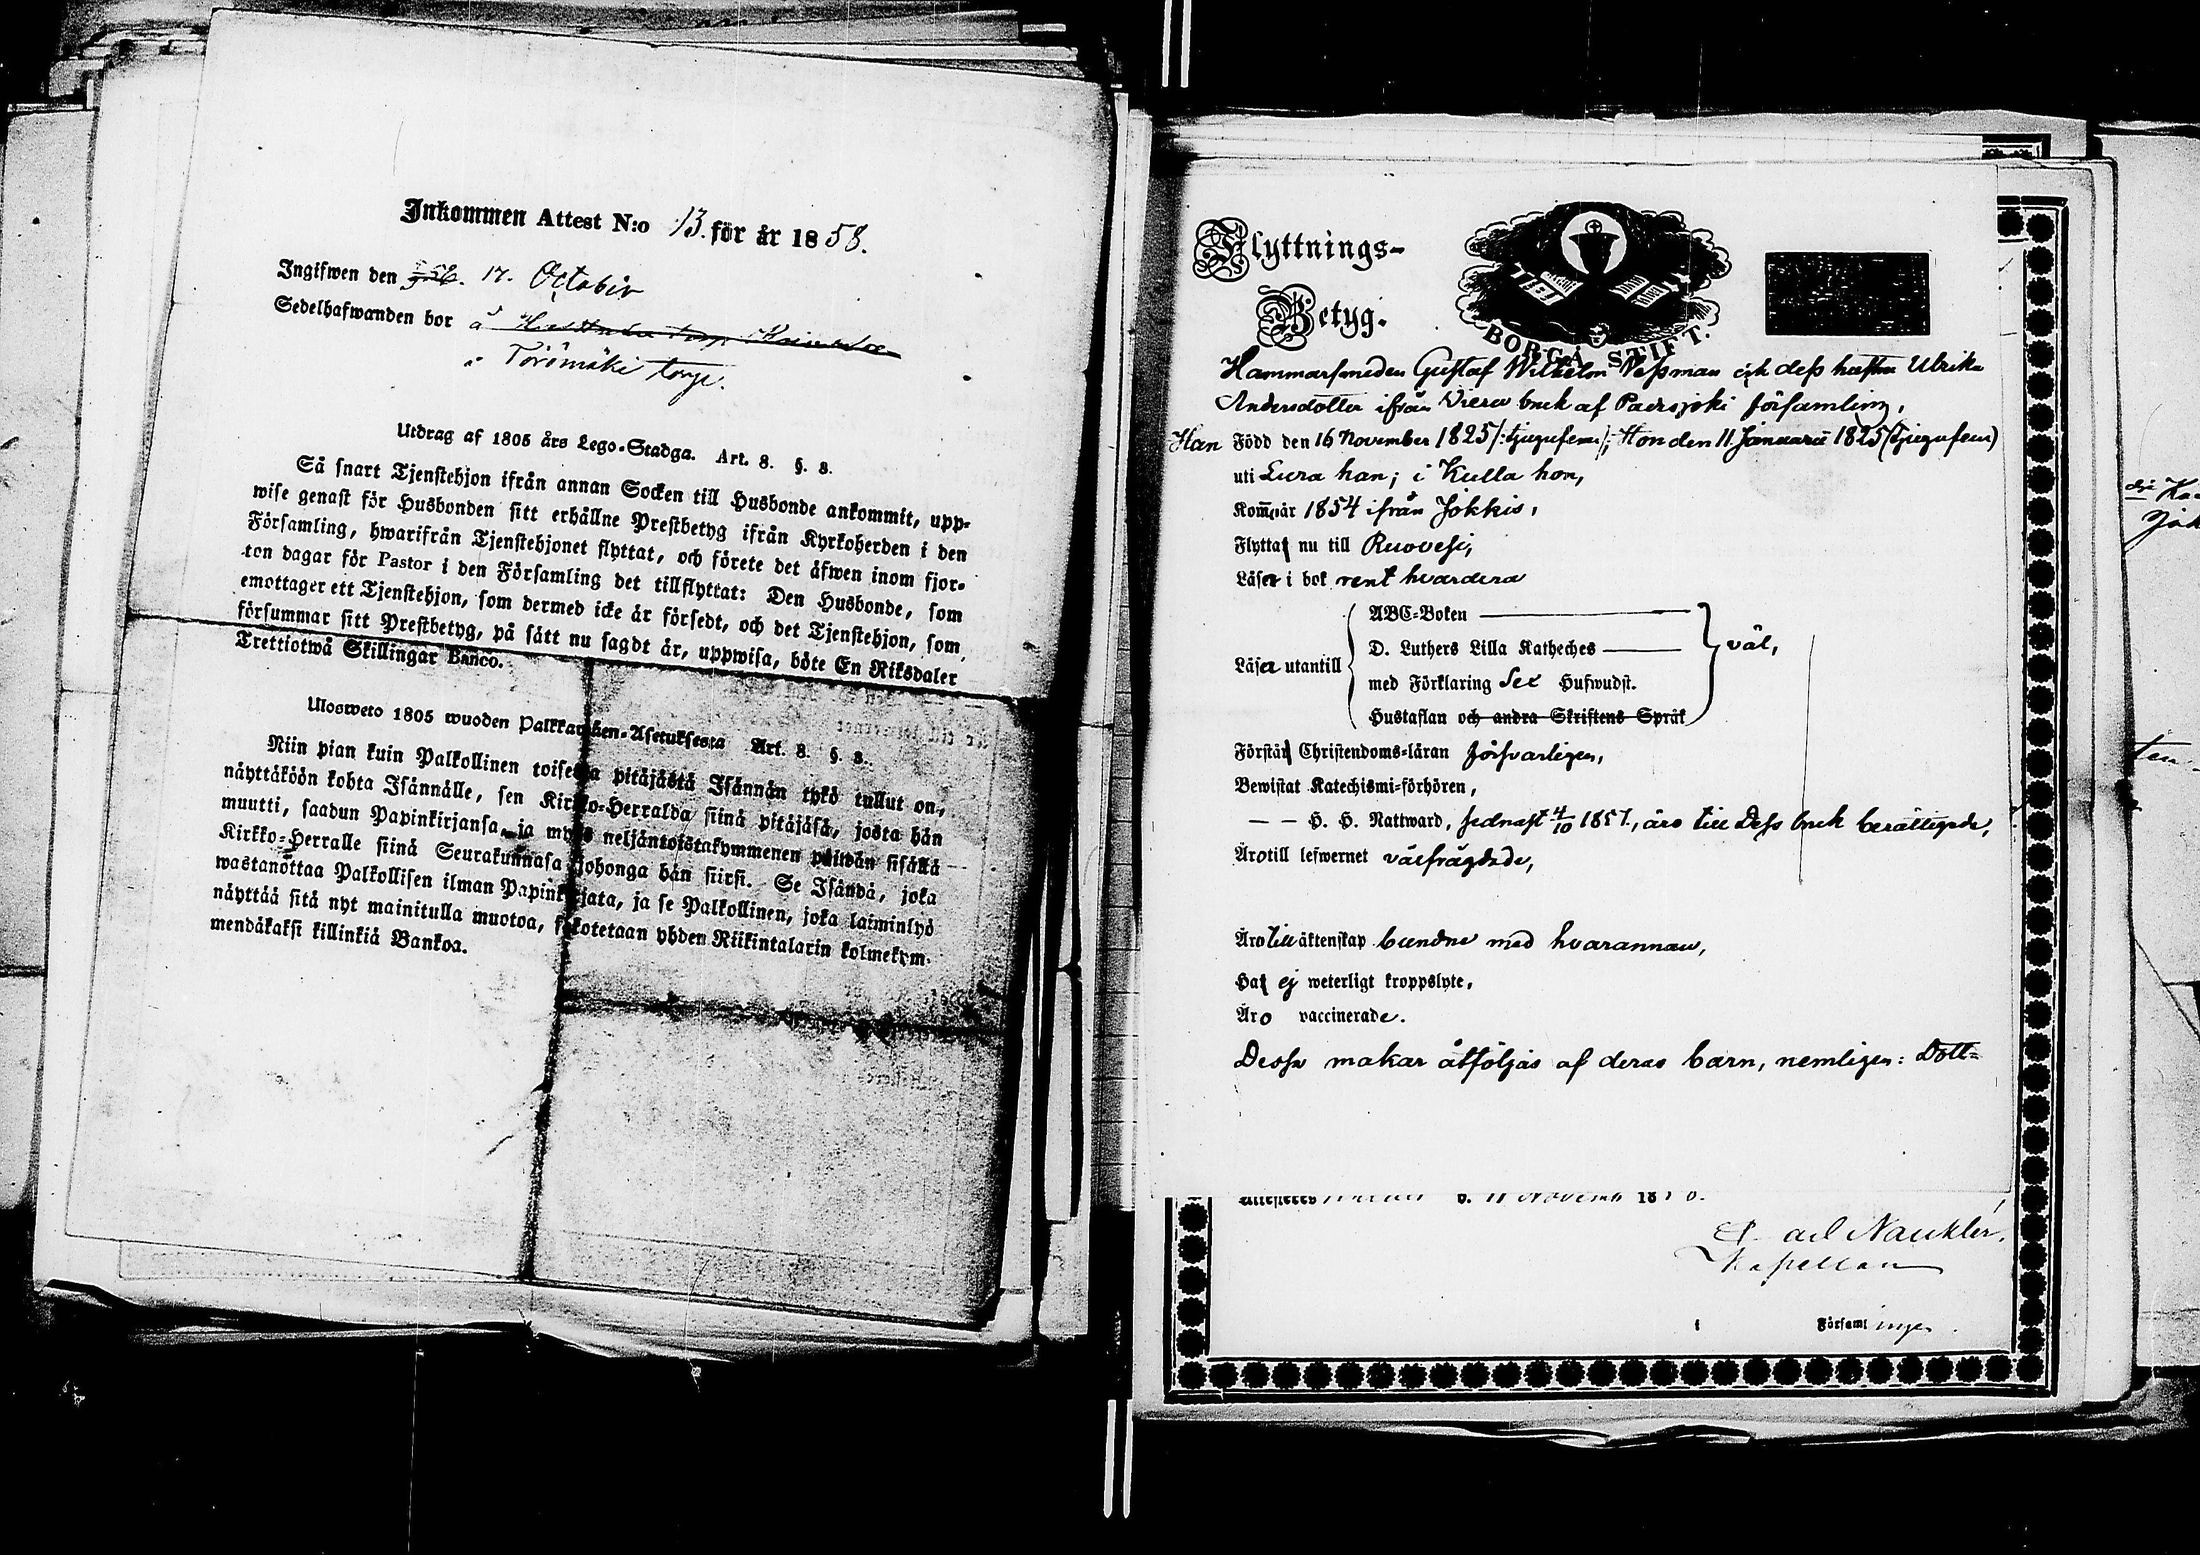 Inkommen Attest N:o 13. för år 1858.
Ingifwen den 17. October
Sedelhafwanden bor å
Törömäki torp.
Utdrag af 1805 års Lego-Stadga. Art. 8. §. 8.
Så snart Tjenstehjon ifrån annan Socken till Husbonde ankommit, upp-
wise genast för Husbonden sitt erhållne Prestbetyg ifrån Kyrkoherden i den
Församling, hwarifrån Tjenstehjonet flyttat, och förete det äfwen inom fjor-
ton dagar för Pastor i den Församling det tillflyttat: Den Husbonde, som
emottager ett Tjenstehjon, som dermed icke är försedt, och det Tjenstehjon, som
försummar sitt Prestbetyg, på sätt nu sagdt är, uppwisa, böte En Riksdaler
Trettiotwå Skillingar Banco.
Ulosweto 1805 wuoden Palkkawäen-Asetuksesta Art. 8. §. 8.
Niin pian kuin Palkollinen toisesta pitäjästä Isännän tykö tullut on,
näyttäköön kohta Isännälle, sen Kirkko-Herralda siinä pitäjäsä, josta hän
muutti, saadun Papinkirjansa, ja myös neljäntoistakymmenen päiwän sisällä
Kirkko-Herralle siinä Seurakunnasa johonga hän siirsi. Se Isändä, joka
wastanottaa Palkollisen ilman Papinkirjata, ja se Palkollinen, joka laiminlyö
näyttää sitä nyt mainitulla muotoa, sakotetaan yhden Riikintalarin kolmekym-
mendäkaksi killinkiä Bankoa.
Flyttnings-
Betyg.
BORGÅ STIFT.
Hammarsmeden Gustaf Wilhelm Wessman och dess hustru Ulrika
Andersdotter ifrån Wieru bruk af Padasjoki församling,
Han Född den 16 November 1825 /:tjugufem:/; Hon den 11 Januarii 1825 (tjugufem)
uti Lura han; i Kulla hon,
Kom̄o år 1854 ifrån Jokkis,
Flytta nu till Ruovesi,
Läser i bok rent hvardera
ABC-Boken
D. Luthers Lilla Katheches väl,
Läser utantill
med Förklaring Sex Hufwudst.
Hustaflan och andra Skriftens Språk
Förstå Christendoms-läran försvarligen,
Bewistat Katechismi-förhören,
— — H. H. Nattward, sednast 4/10 1857, äro till Dess bruk berättigade,
Äro till lefwernet välfrägdade,
Äro till äktenskap bundne med hvarannan,
Ha ej weterligt kroppslyte,
Äro vaccinerade.
Dessa makar åtföljas af deras barn, nemligen: Dott-
d. 11 Novemb 18
Nauklér.
Kapellan
i Församlingen.